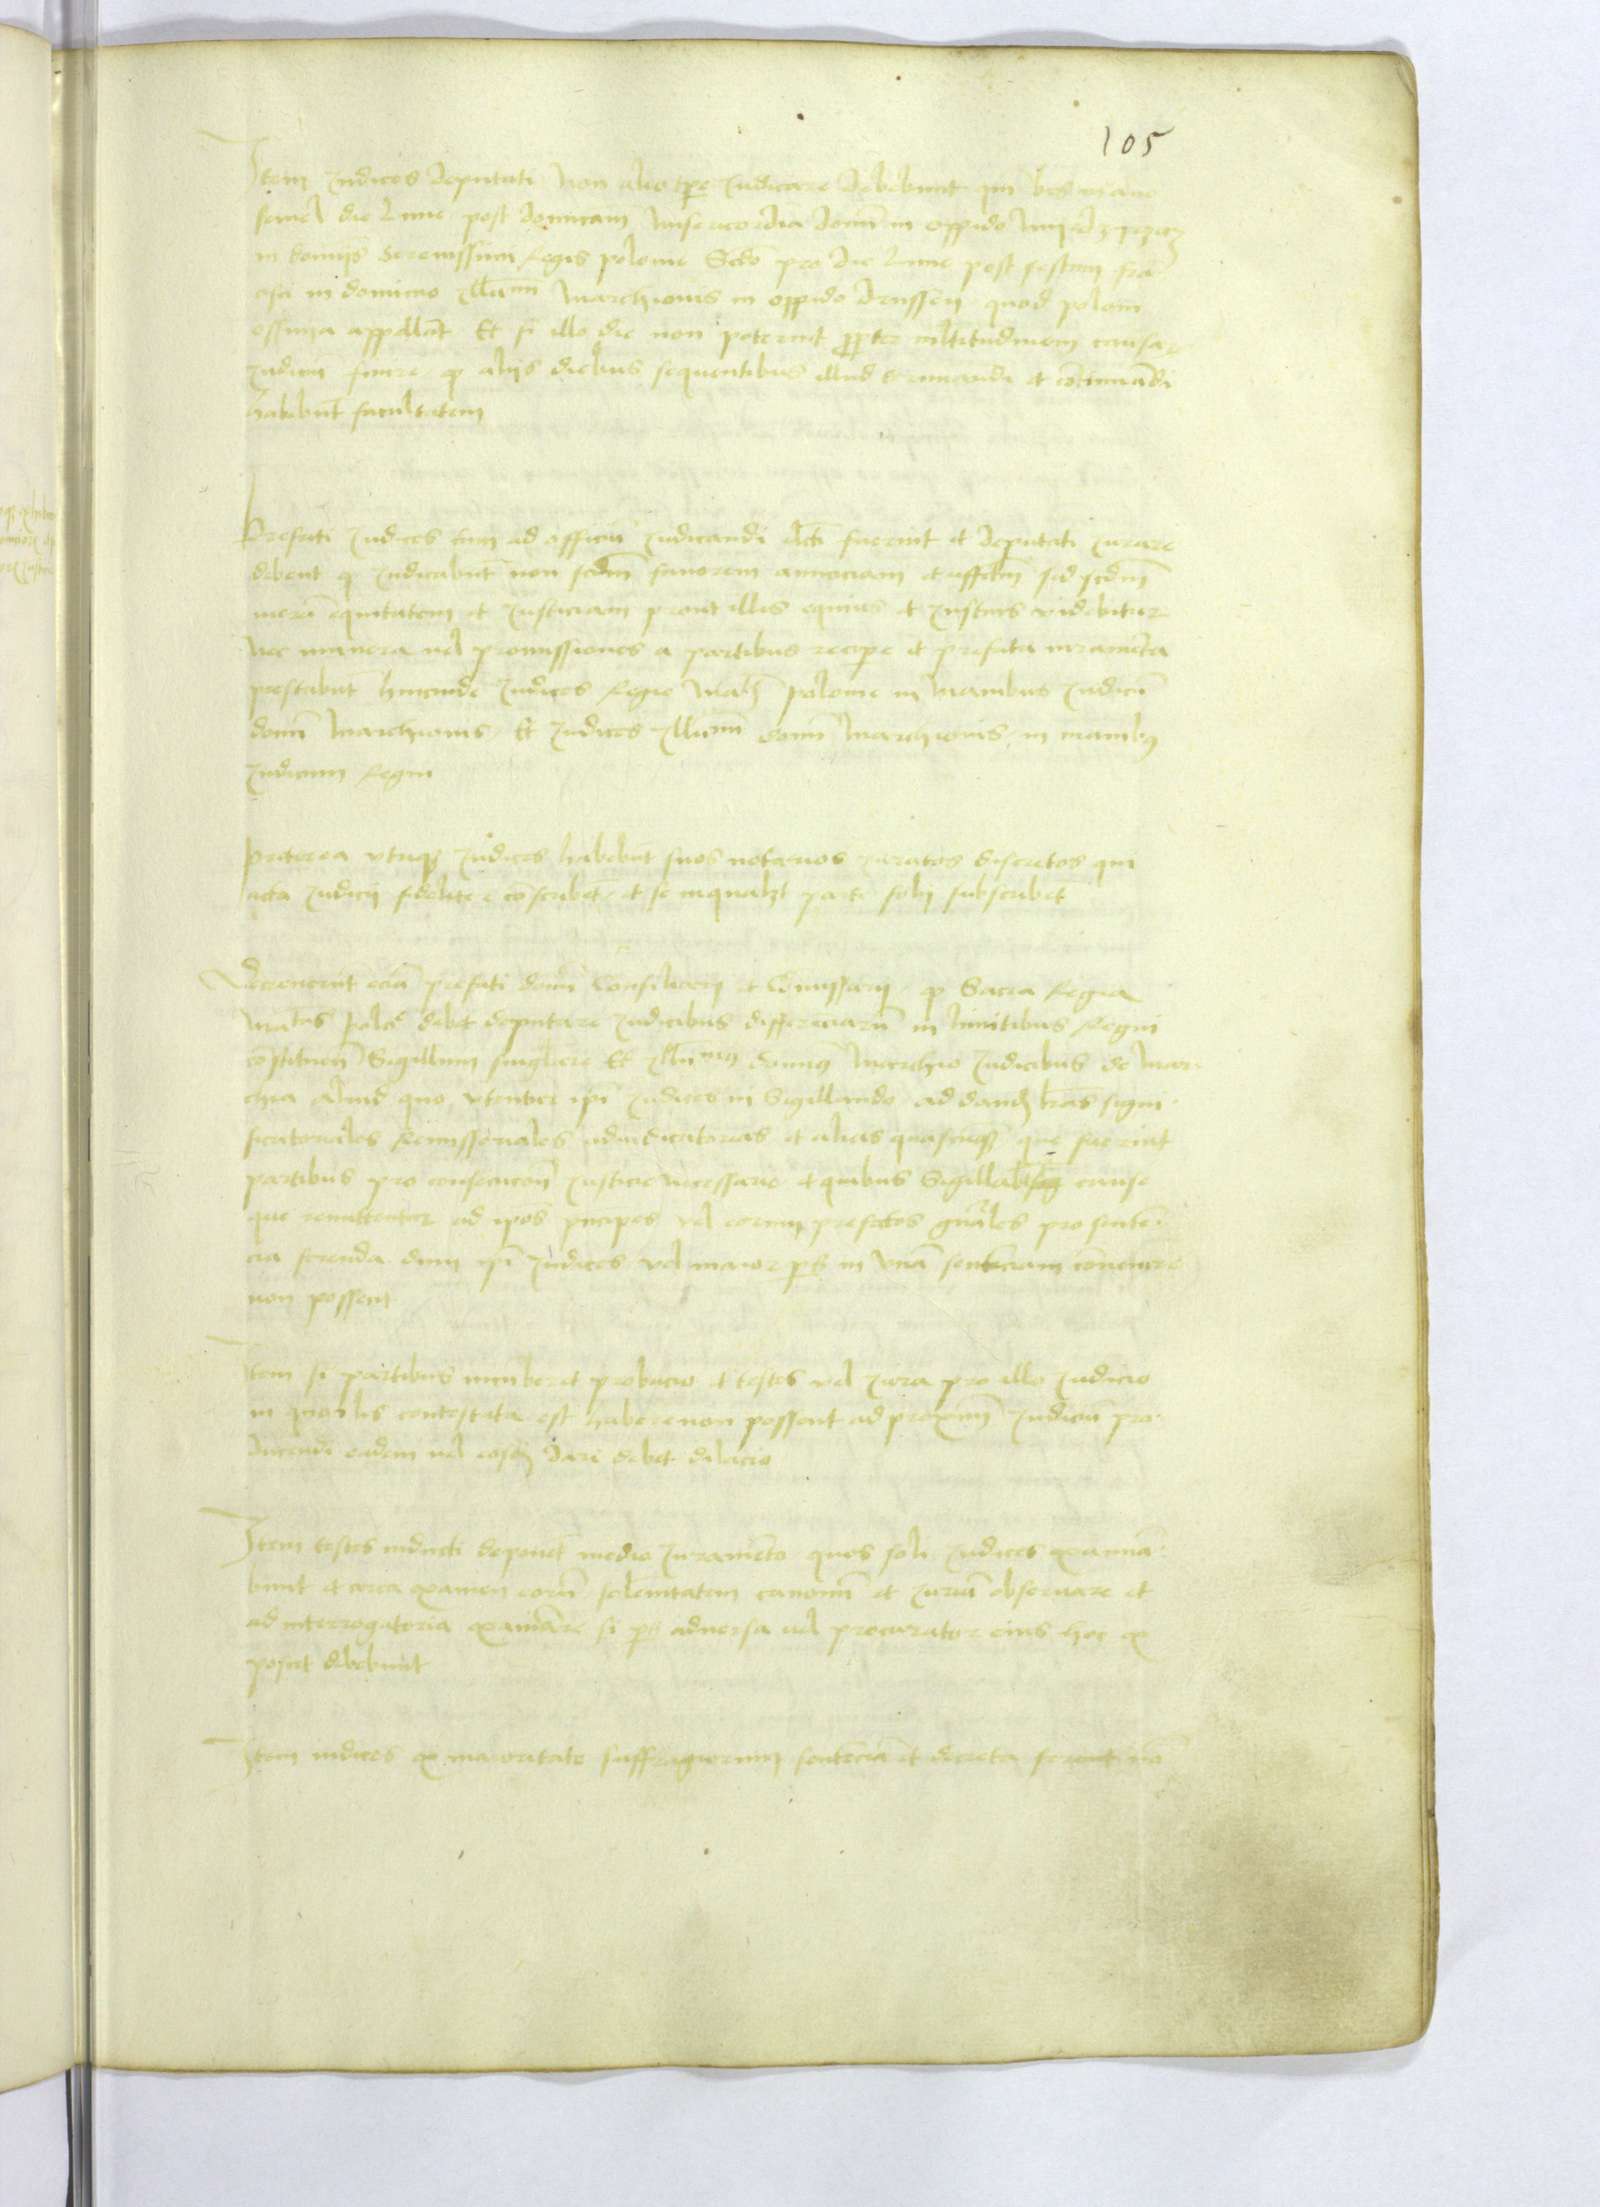 105
Item Judices deputati non alio tpe Judicare debebunt qm bis in anno
semel die Lune post domicam misericordia domi in oppido
in bonis Serenissimi Regis polonie Scdo pro die Lune post festum fra
cisci in dominio Illmi Marchionis in oppido Drussen quod poloni
ossima appellat Et si illo die non poterint ppter mltitudinem causar
Judicium finire q aliis diebus sequentibus illud terminandi et continuadi
habebut facultatem
Prefati Judices cum ad officiu Judicandi electi fuerint et deputati Jurare
debent q Judicabut non scdm favorem amiciciam et affctum sed scdm
mera equitatem et Justiciam prout illis equius et Justius videbitur
nec munera vel promissiones a partibus recipe et prefata iuramenta
prestabut hincinde Judices Regie Maiestatis polonie in manibus Judicu
domi Marchionis Et Judices Illmi domi Marchionis in manibus
Judicum Regni
preterea utriqz Judices habebut suos notarios iuratos discretos qui
acta Judicii fideliter coscribet et se in qualibet parte folij subscribet
Decreverut ecia prefati domi Consiliarij et Comissarij q Sacra Regia
Matas polonie debet deputare Judicibus differenciaru in limitibus Regni
costituen Sigillum singulare Et Illmus domnus Marchio Judicibus de Mar
chia aliud quo utentur ipi Judices in Sigillando ad dand lras signi
ficatoriales Remissoriales adiudicatorias et alias quascuqz que fuerint
partibus pro consecucione Justicie necessarie et quibus cause
que remittentur ad ipos pncipes vel eorum prefatos gnrales pro senten
cia ferenda dum ipi Judices vel maior ps in una sentenciam convenire
non possent
Item si partibus incuberet probacio et testes vel Jura pro illo Judicio
in quo lis contestata est habere non possent ad proximu Judiciu pro
ducendi eadem vel eosdem dari debet dilacio
Item testes inducti deponet medio Juramento quos soli Judices examina
bunt et circa examen eoru solennitatem canonum et Juriu observare et
ad interrogatoria examinare si ps adversa vel procurator eius hoc ex
poscet debebunt
Item iudices ex maioritate suffragiorum sentencia et decreta ferent